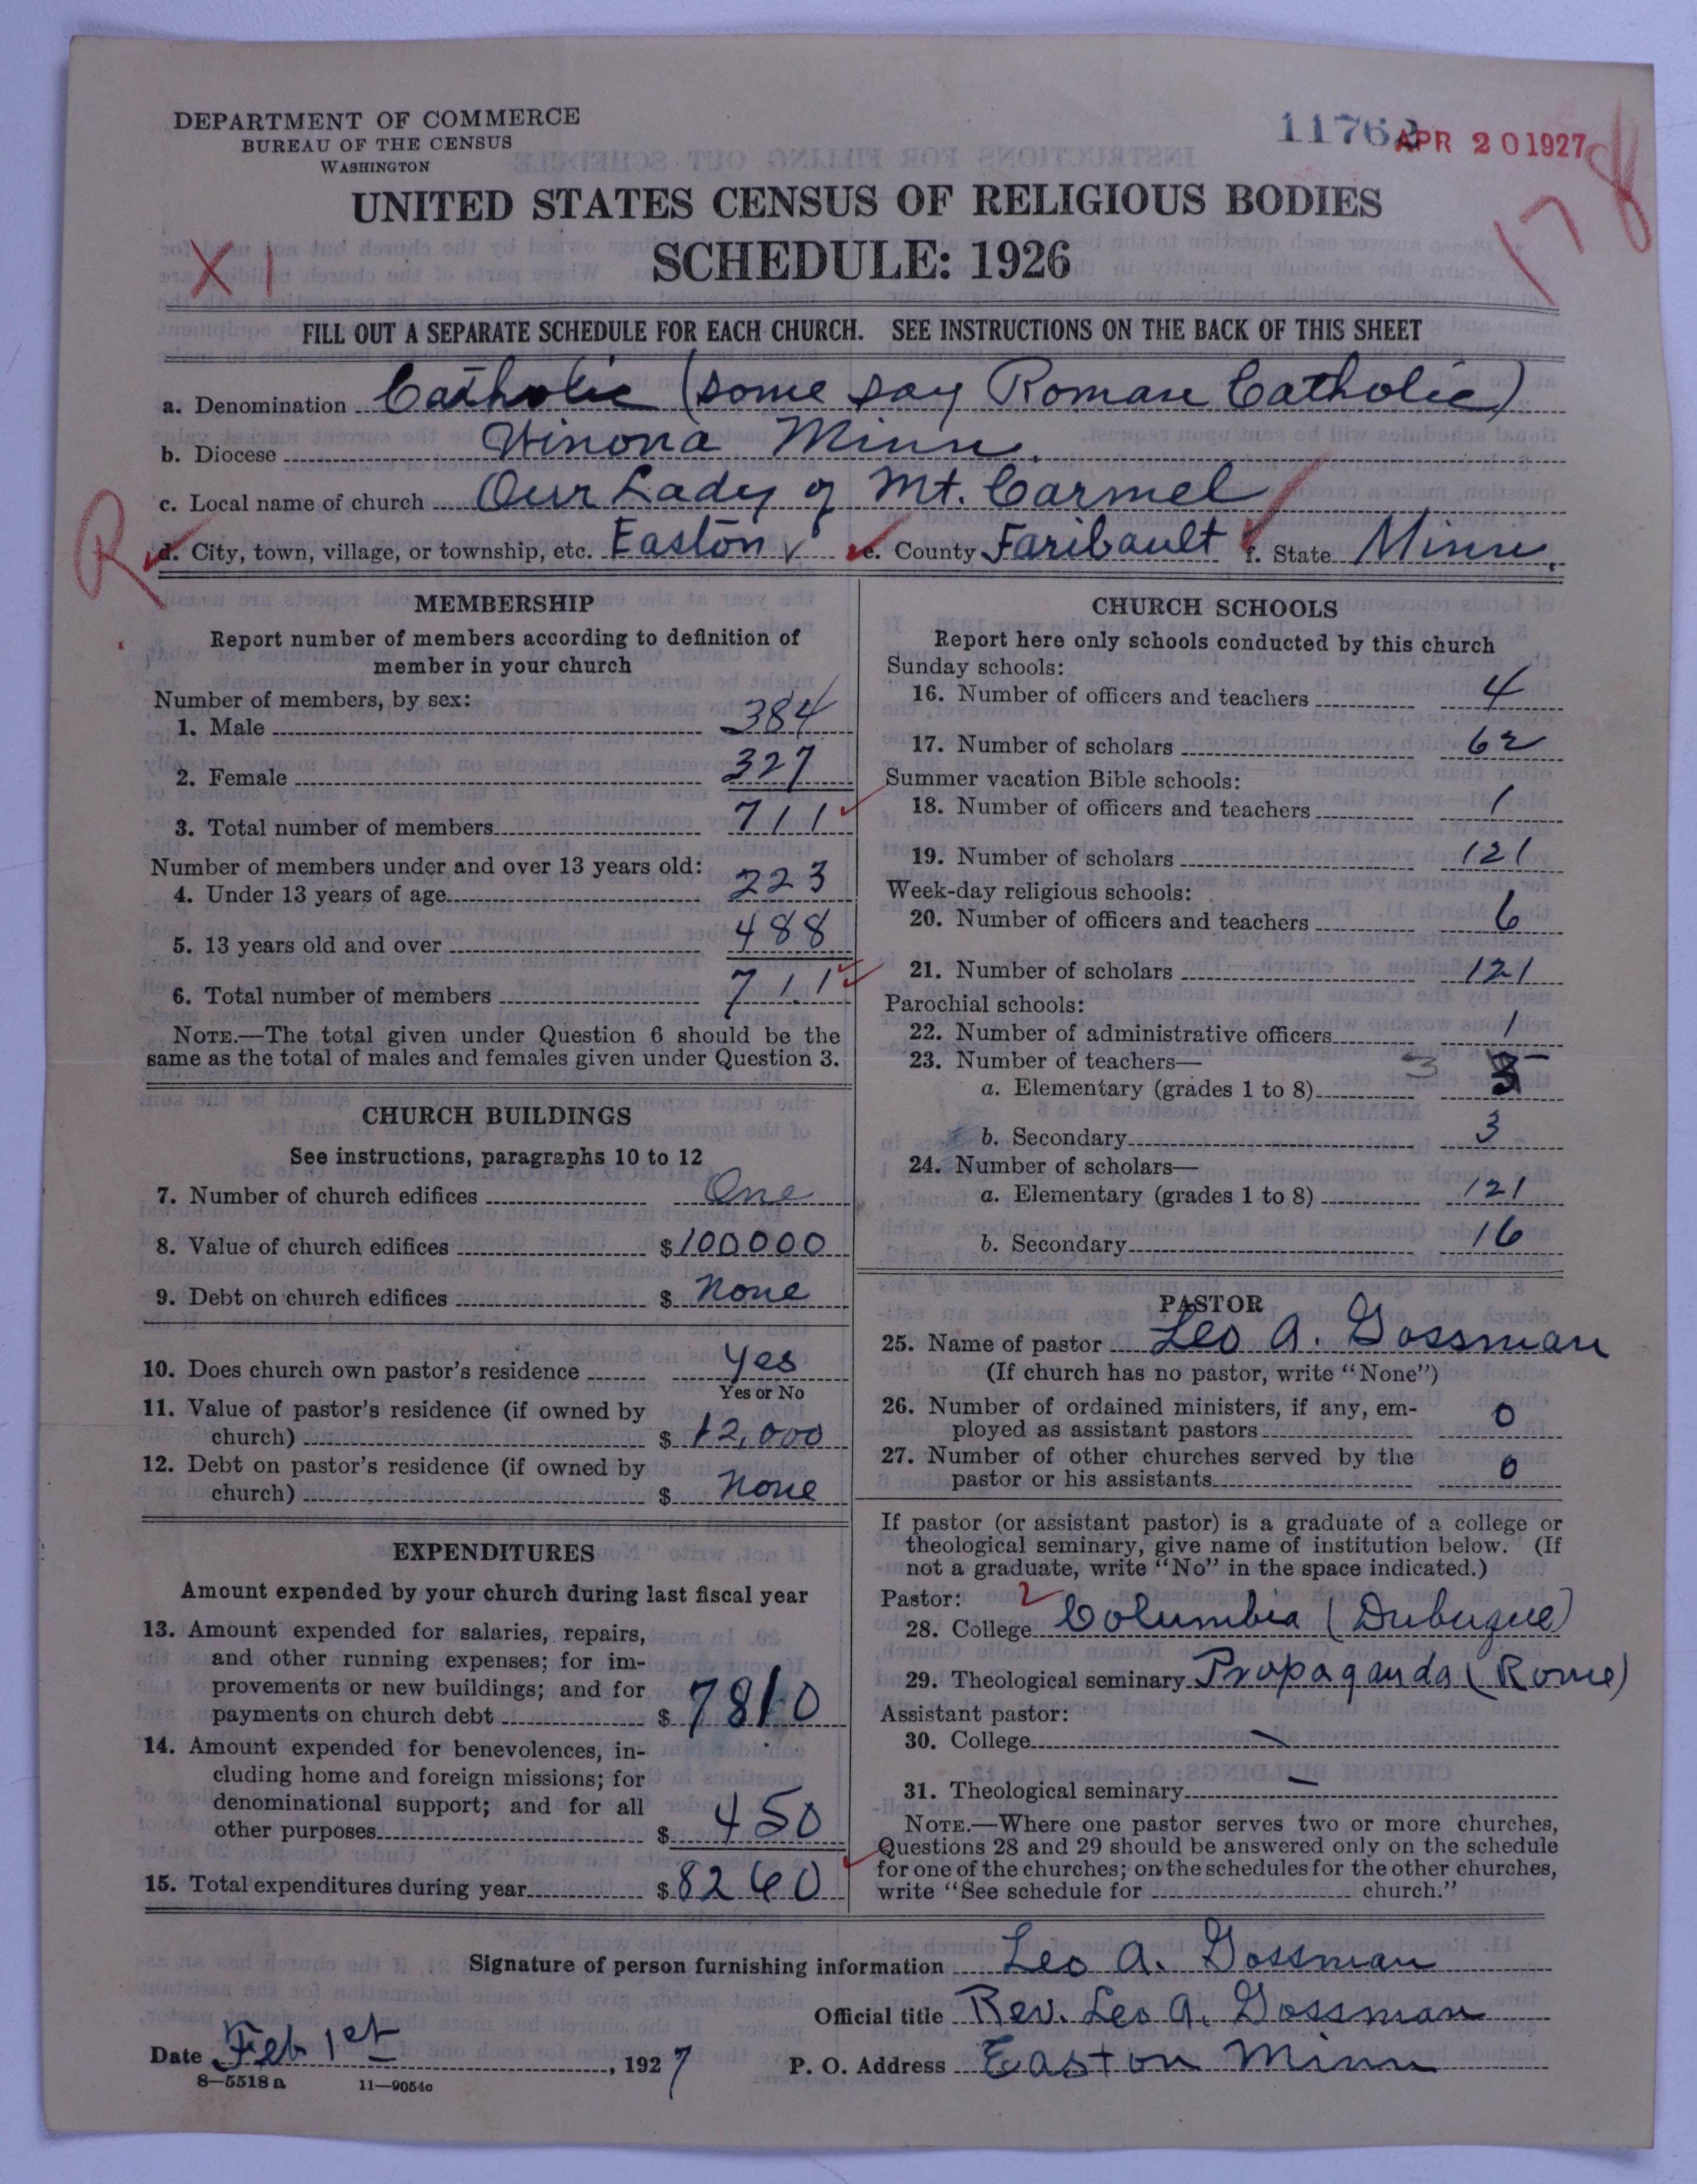 DEPARTMENT OF COMMERCE
BUREAU OF THE CENSUS
WASHINGTON
11762 APR 20 1927
178
UNITED STATES CENSUS OF RELIGIOUS BODIES
SCHEDULE: 1926
X 1
FILL OUT A SEPARATE SCHEDULE FOR EACH CHURCH. SEE INSTRUCTIONS ON THE BACK OF THIS SHEET
a. Denomination Catholic (some say Roman Catholic)
b. Diocese Winona Minn.
c. Local name of church Our Lady of Mt. Carmel
R d. City, town, village, or township, etc. Easton e. County Faribault f. State Minn.
MEMBERSHIP
Report number of members according to definition of
member in your church
Number of members, by sex:
1. Male 384
2. Female 327
3. Total number of members 711
Number of members under and over 13 years old:
4. Under 13 years of age 223
5. 13 years old and over 488
6. Total number of members 711
NOTE.—The total given under Question 6 should be the
same as the total of males and females given under Question 3.
CHURCH BUILDINGS
See instructions, paragraphs 10 to 12
7. Number of church edifices One
8. Value of church edifices $100000
9. Debt on church edifices $ None
10. Does church own pastor's residence Yes
Yes or No
11. Value of pastor's residence (if owned by
church) $ 12,000
12. Debt on pastor's residence (if owned by
church) $ None
EXPENDITURES
Amount expended by your church during last fiscal year
13. Amount expended for salaries, repairs,
and other running expenses; for im-
provements or new buildings; and for
payments on church debt $ 7810
14. Amount expended for benevolences, in-
cluding home and foreign missions; for
denominational support; and for all
other purposes $ 450
15. Total expenditures during year $8260
CHURCH SCHOOLS
Report here only schools conducted by this church
Sunday schools:
16. Number of officers and teachers 4
17. Number of scholars 62
Summer vacation Bible schools:
18. Number of officers and teachers 1
19. Number of scholars 121
Week-day religious schools:
20. Number of officers and teachers 6
21. Number of scholars 121
Parochial schools:
22. Number of administrative officers 1
23. Number of teachers—
a. Elementary (grades 1 to 8) 3
b. Secondary 3
24. Number of scholars—
a. Elementary (grades 1 to 8) 121
b. Secondary 16
PASTOR
25. Name of pastor Leo A. Gossman
(If church has no pastor, write "None")
26. Number of ordained ministers, if any, em-
ployed as assistant pastors 0
27. Number of other churches served by the
pastor or his assistants 0
If pastor (or assistant pastor) is a graduate of a college or
theological seminary, give name of institution below. (If
not a graduate, write "No" in the space indicated.)
Pastor: 2
28. College Columbia (Dubuque)
29. Theological seminary Propaganda (Rome)
Assistant pastor:
30. College —
31. Theological seminary —
NOTE.—Where one pastor serves two or more churches,
Questions 28 and 29 should be answered only on the schedule
for one of the churches; on the schedules for the other churches,
write "See schedule for church."
Signature of person furnishing information Leo A. Gossman
Official title Rev. Leo A. Gossman
Date Feb 1st, 1927 P. O. Address Easton Minn
8—5518 a 11—9054c